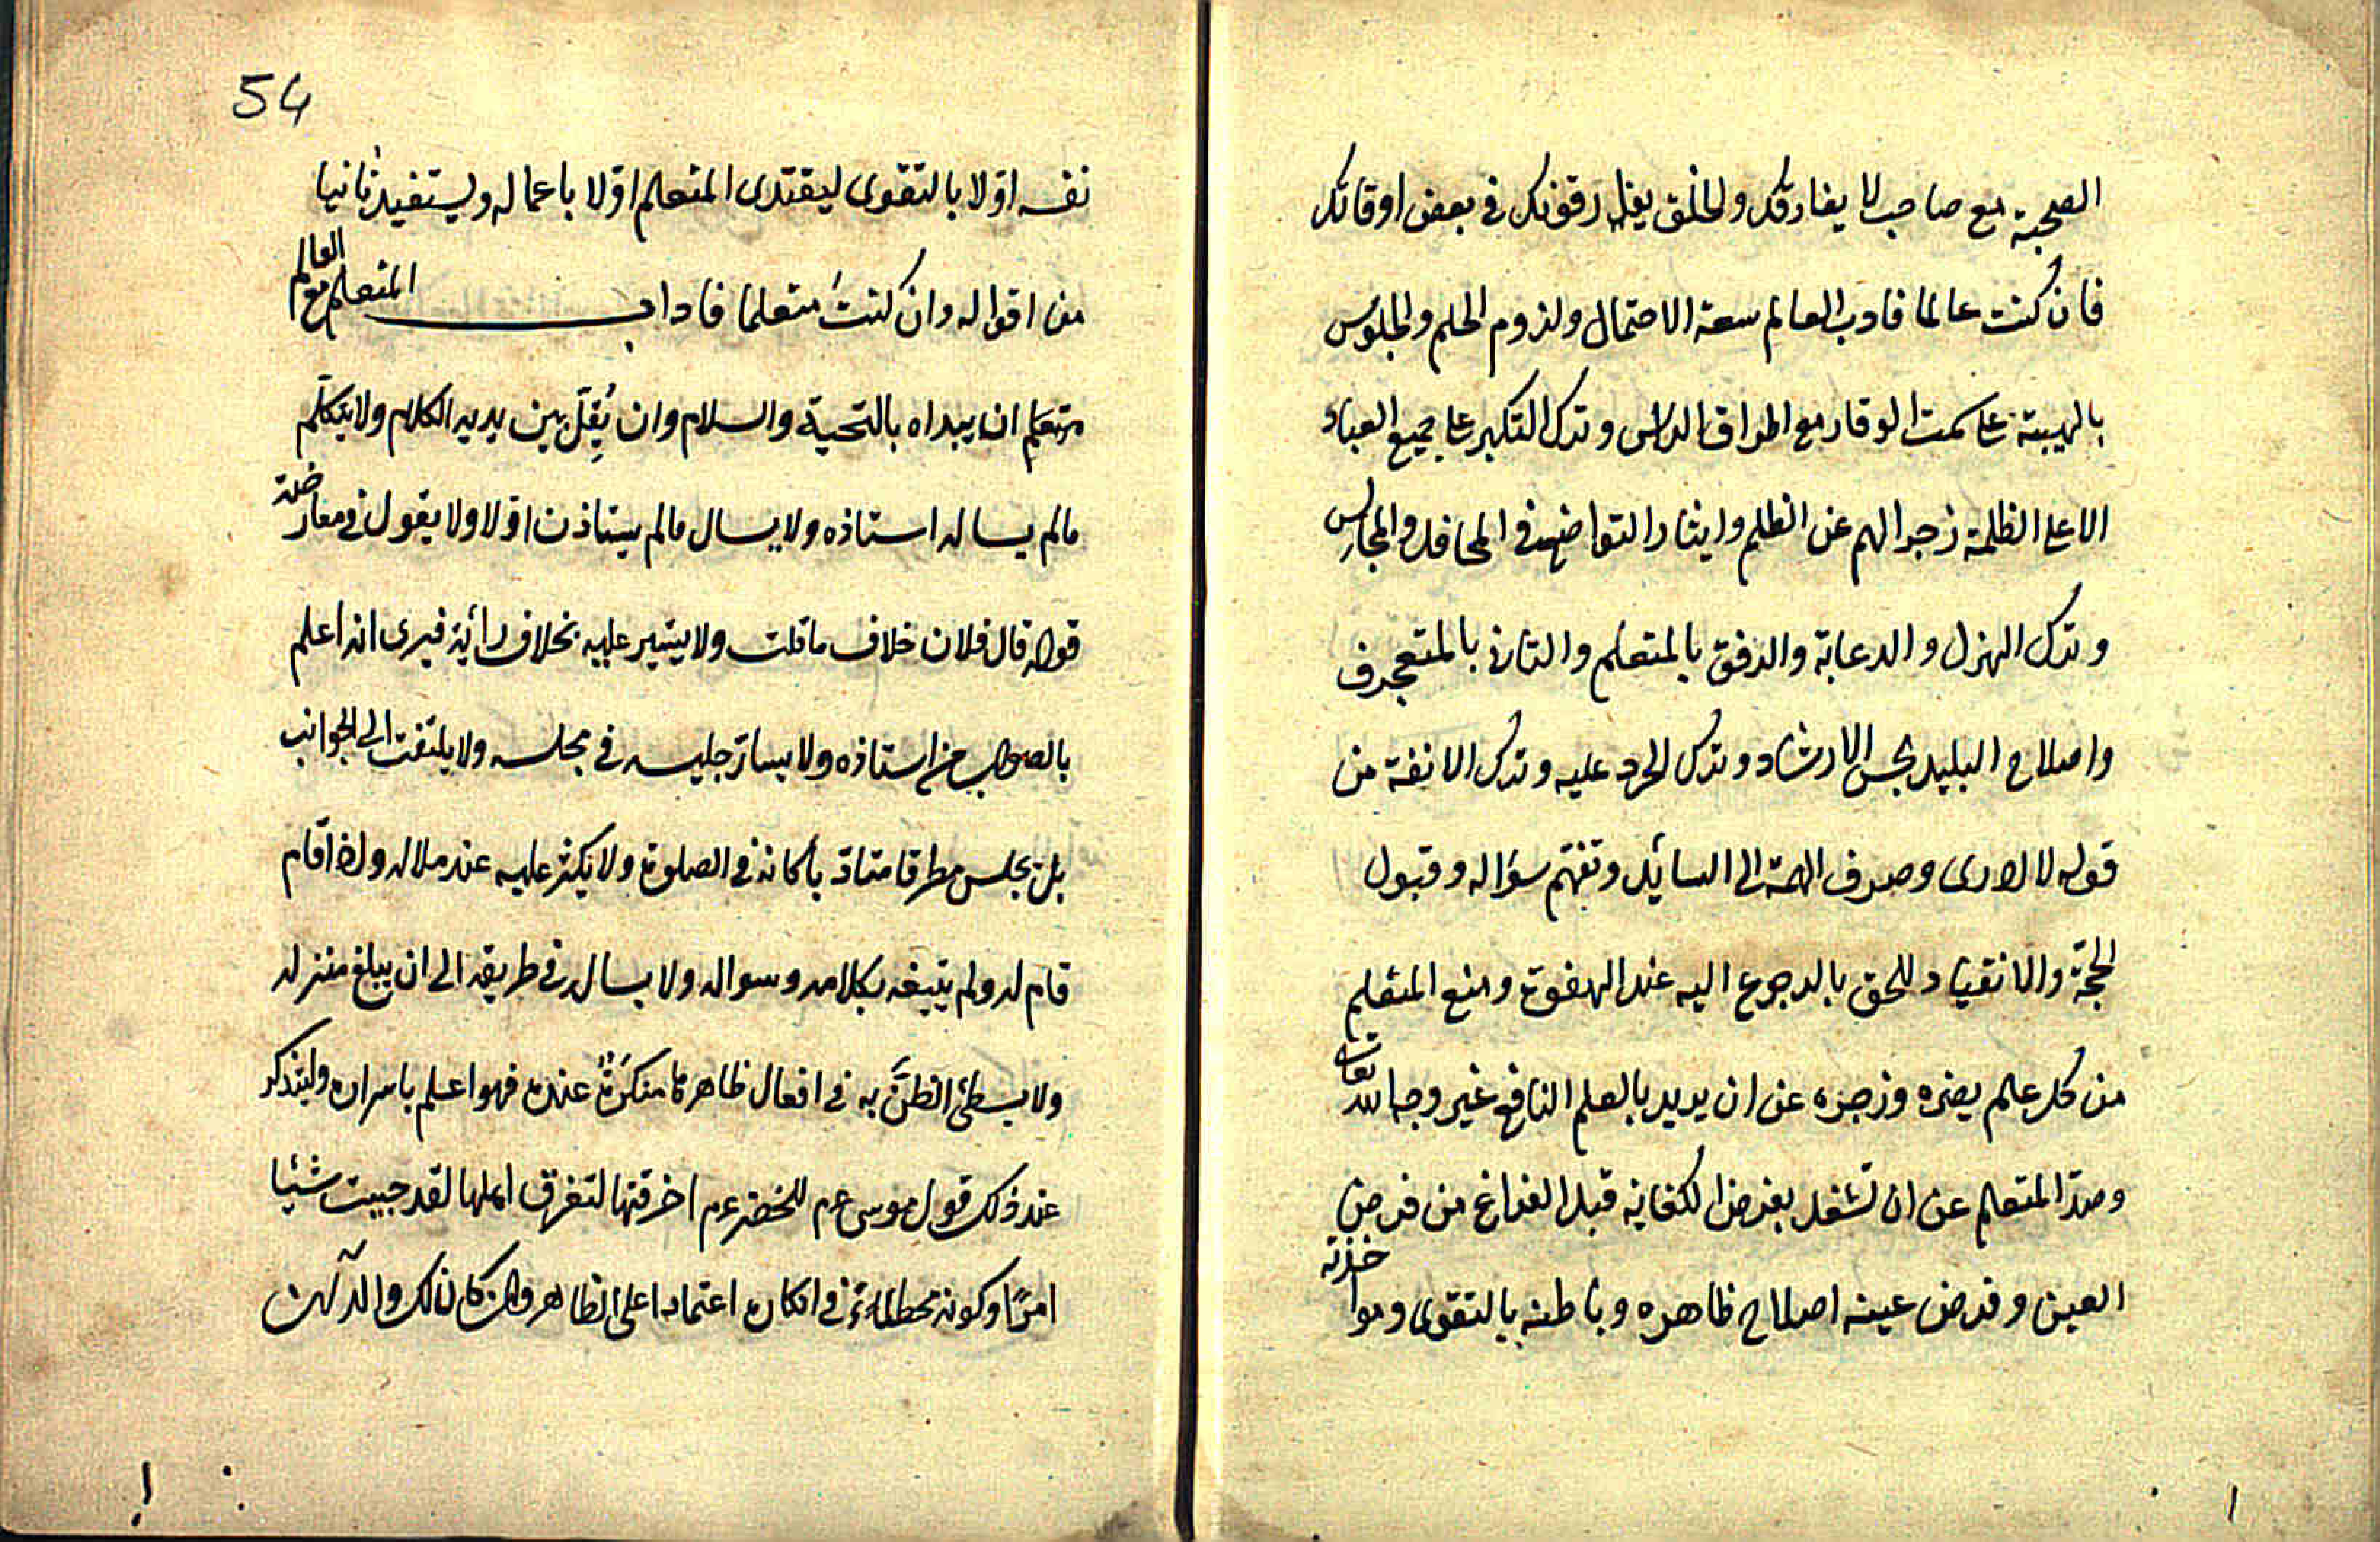 الصحبة مع صاحب لا يفارقك والخلق يفارقونك في بعض اوقاتك
فان كنت عالما فادب العالم سعة الاحتمال ولزوم الحلم والجلوس
بالهيبة على سمت الوقار مع اطراق الراس وترك التكبر على جميع العباد
الا على الظلمة زجرا لهم عن الظلم وايثار التواضع في المحافل والمجالس
وترك الهزل والدعابة والرفق بالمتعلم والتاني بالمتعجرف
واصلاح البليد بحسن الارشاد وترك الحرد عليه وترك الانفة من
قوله لا ادرى وصرف الهمة الى السائل وتفهّم سؤاله وقبول
الحجّة والانقياد للحق بالرجوع اليه عند الهفوة ومنع المتعلم
من كل علم يضره وزجره عن ان يريد بالعلم النافع غير وجه الله تعالى
وصدّ المتعلم عن ان تشغل بفرض الكفاية قبل الفراغ من فرض
العين وفرض عينه اصلاح ظاهره وباطنه بالتقوى ومواخذته
54
نفسه اوّلا بالتقوى ليقتدى المتعلم اوّلا باعماله ويستفيد ثانيا
من اقواله وان كنت متعلما فاداب المتعلم مع العالم
ان يبداه بالتحية والسلام وان يُقِلّ بين يديه الكلام ولا يتكلّم
مالم يساله استاذه ولا يسال مالم يستاذن اوّلا ولا يقول في معارضة
قوله قال فلان خلاف ما قلت ولا يشير عليه بخلاف رأيه فيرى انه اعلم
بالصواب من استاذه ولا يسارّ جليسه في مجلسه ولا يلتفت الى الجوانب
بل يجلس مطرقا متادّبا كانه في الصلوة ولا يكثر عليه عند ملاله واذا قام
قام له ولم يتبعه بكلامه وسواله ولا يساله في طريقه الى ان يبلغ منزله
ولا يسئ الظنّ به في افعال ظاهرها منكرة عنده فهو اعلم باسراره وليتذكر
عند ذلك قول موسى عم للخضر عم اخرقتها لتغرق اهلها لقد جيت شئيا
امرًا وكونه مخطئا في انكاره اعتمادا على الظاهر وان كان لك والد آن